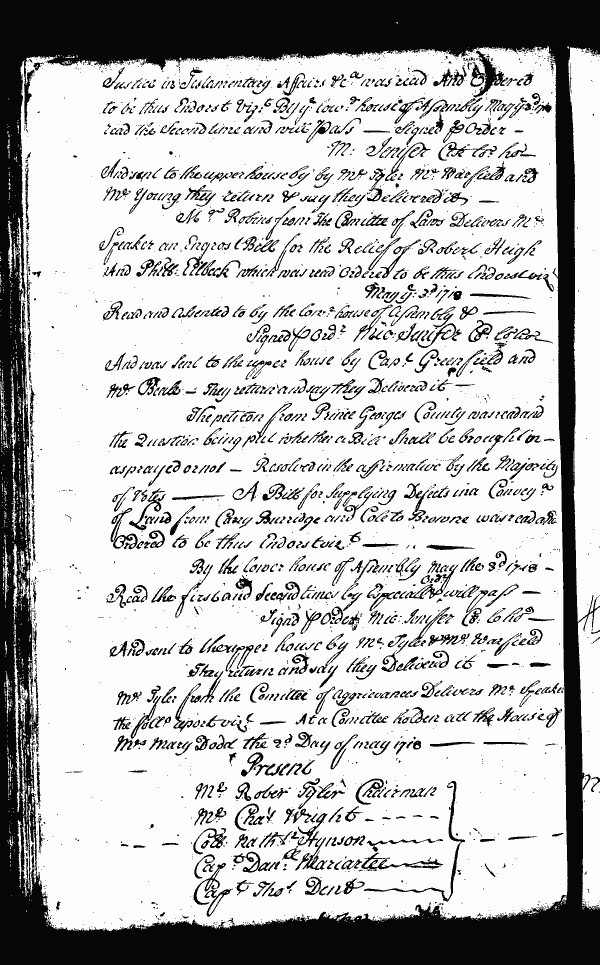 Justice in Testamentary Affairs &ca was read And Ordered
to be thus Endorst vizt By ye lowr. house of Assembly May ye 3d 1718
read the Second time and will pass — Signed p Order —
M: Jenifer Clk lor hos
And sent to the upper house by by Mr Tyler Mr Warfield and
Mr Young they return & say they Delivered it —
Mr Robins from The Comittee of Laws Delivers Mr
Speaker an Engrost Bill for the Relief of Robert Heigh
And Phill: Eilbeck which was read Ordered to be thus Endorst viz
May ye 3d 1718 —
Read and assented to by the lowr house of assembly &
Signed p Ordr Mic: Jenifer Cl. lo hos
And was sent to the upper house by Capt. Greenfield and
Mr Beale — They return and say they Delivered it —
The petition from Prince Georges County was read and
the Question being put whether a Bill Shall be brought in —
as prayed or not — Resolved in the affirmative by the Majority
of Votes — A Bill for Supplying Defects in a Convey.ce
of Land from Burridge and Browne was read and
Ordered to be thus Endorst vizt —
By the lower house of Assembly May the 3d 1718 —
Read the first and Second times by Especiall Ordr & will pass —
Signd p Order Mic: Jenifer Cl. lo hos —
And sent to the upper house by Mr. Tyler & Mr Warfield
They return and say they Delivered it —
Mr Tyler from the Comittee of Aggrievances Delivers Mr Speaker
the follo report vizt — At a Comittee holden att the House of
Mrs Mary Dodd the 2d Day of may 1718 —
Present
Mr Rober Tyler Chairman
Mr Chas Wright
Coll. Nathll Hynson
Capt Danll Mariartee
Capt Thos Dent